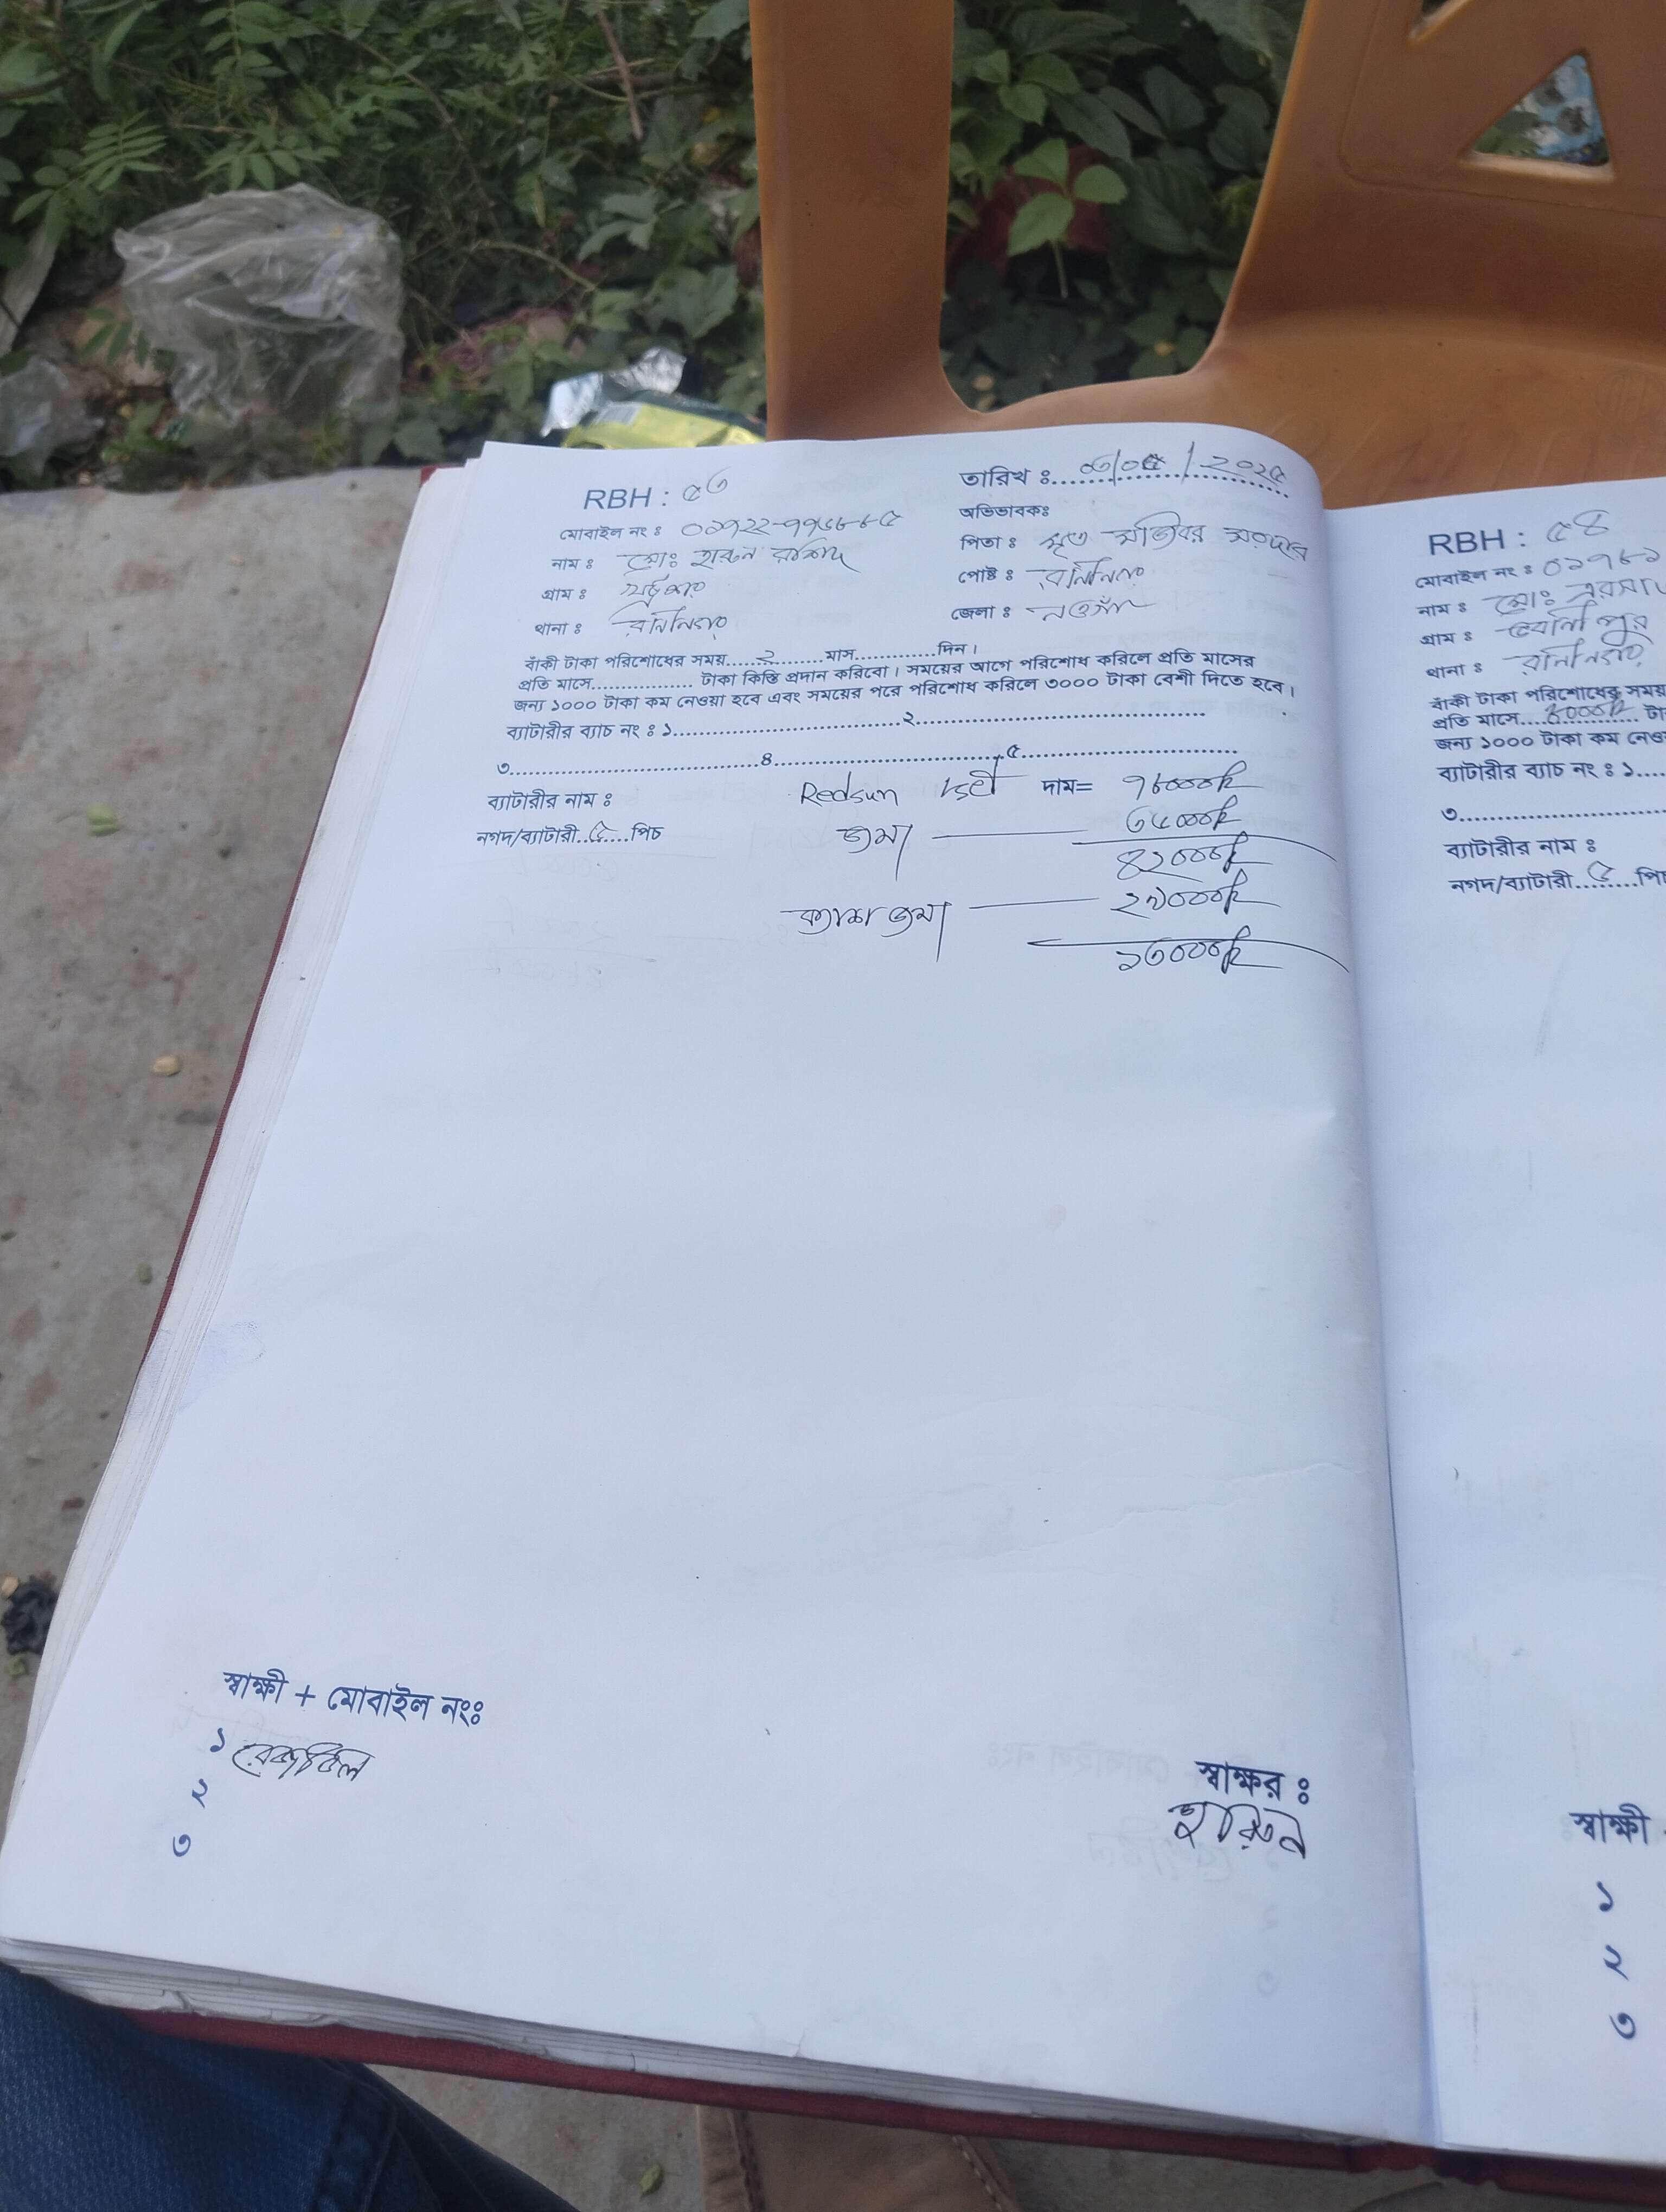 RBH : ৫৩
তারিখ ঃ ০৩/০৫/২০২৫
মোবাইল নং ঃ
অভিভাবকঃ
নাম ঃ মোঃ হারুন রশিদ
পিতা ঃ মৃত মজিবর সরদার
গ্রাম ঃ
পোষ্ট ঃ রানীনগর
থানা ঃ রানীনগর
জেলা ঃ নওগাঁ
বাঁকী টাকা পরিশোধের সময়.....২........মাস............দিন।
প্রতি মাসে................ টাকা কিস্তি প্রদান করিবো। সময়ের আগে পরিশোধ করিলে প্রতি মাসের
জন্য ১০০০ টাকা কম নেওয়া হবে এবং সময়ের পরে পরিশোধ করিলে ৩০০০ টাকা বেশী দিতে হবে।
ব্যাটারীর ব্যাচ নং ঃ ১....................................২..............................................
৩.......................................৪.....................................৫...................................
ব্যাটারীর নাম ঃ Redsun ১সেট দাম= ৭৮০০০/=
নগদ/ব্যাটারী..৫....পিচ জমা — ৩৬০০০/=
৪২০০০/=
ক্যাশ জমা — ২৯০০০/=
১৩০০০/=
স্বাক্ষী + মোবাইল নংঃ
১
২
৩
স্বাক্ষর ঃ
হারুন
RBH : ৫৪
মোবাইল নং ঃ ০১৭৮১
নাম ঃ মোঃ
গ্রাম ঃ
থানা ঃ রানীনগর
বাঁকী টাকা পরিশোধের সময়
প্রতি মাসে............... টা
জন্য ১০০০ টাকা কম নেও
ব্যাটারীর ব্যাচ নং ঃ ১....
৩....................
ব্যাটারীর নাম ঃ
নগদ/ব্যাটারী....৫....পি
স্বাক্ষী
১
২
৩